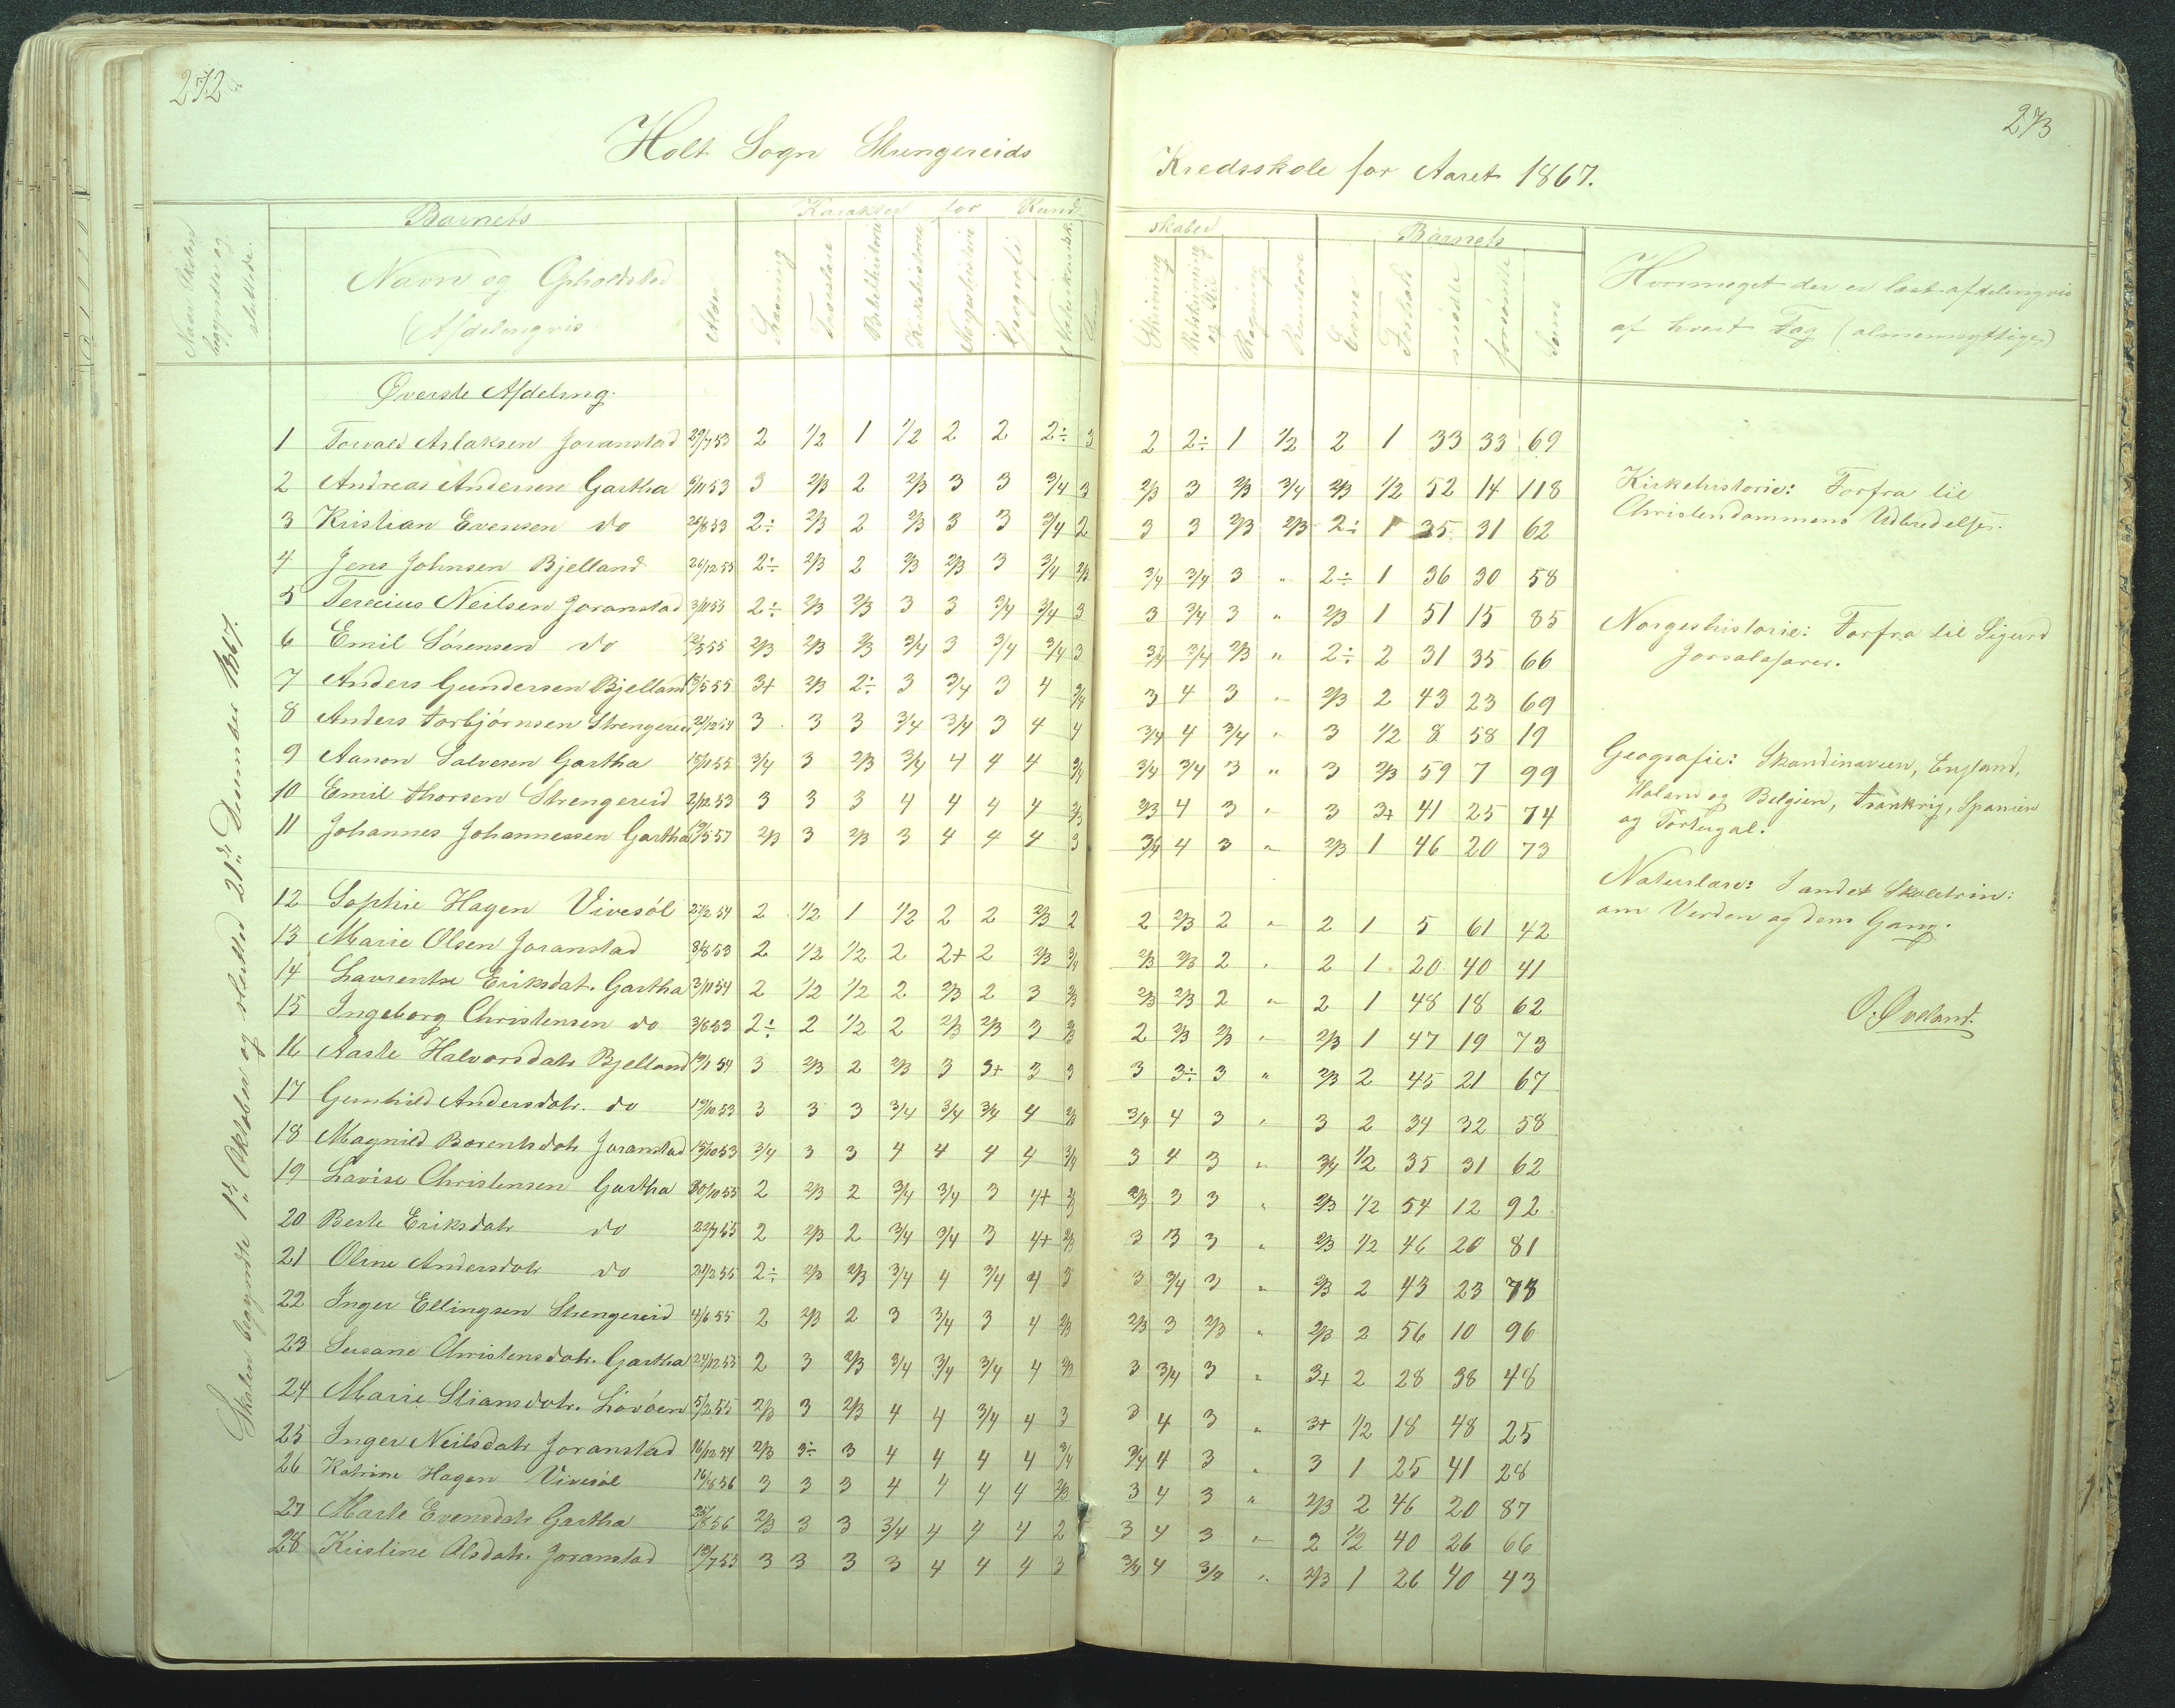 272
Holt Sogn Strengereids
Naar Skolen begyndte og sluttede.
Barnets
Karakter for Kund-
Navn og Opholdsted
(Afdelingvis
Alder
Læsning
Troeslære
Bibelhistorie
Kirkehistorie
Norgeshistorie
Geografi
Naturkundsk.
Sang
Skolen begyndte 1ste Oktober og slutted 21de December 1867.
Øverste Afdeling.
1 Torvald Aslaksen Joranstad 29/7 53 2 1/2 1 1/2 2 2 2÷ 3
2 Andreas Andersen Gartha 9/11 53 3 2/3 2 2/3 3 3 3/4 3
3 Kristian Evensen do 26/8 53 2÷ 2/3 2 2/3 3 3 3/4 2
4 Jens Johnsen Bjelland 26/12 55 2÷ 2/3 2 2/3 2/3 3 3/4 2/3
5 Terecius Neilsen Joranstad 3/11 55 2÷ 2/3 2/3 3 3 3/4 3/4 3
6 Emil Sørensen do 12/3 55 2/3 2/3 2/3 3/4 3 3/4 3/4 3
7 Anders Gundersen Bjelland 13/5 55 3+ 2/3 2÷ 3 3/4 3 4 3/4
8 Anders Torbjørnsen Strengereid 21/12 54 3 3 3 3/4 3/4 3 4 4
9 Aanon Salvesen Gartha 15/11 55 3/4 3 2/3 3/4 4 4 4 3/4
10 Emil Thorsen Strengereid 2/12 53 3 3 3 4 4 4 4 2/3
11 Johannes Johannessen Gartha 19/5 57 2/3 3 2/3 3 4 4 4 3
12 Sophie Hagen Vivesøl 27/2 54 2 1/2 1 1/2 2 2 2/3 2
13 Marie Olsen Joranstad 3/8 53 2 1/2 1/2 2 2+ 2 2/3 3/4
14 Lavrentse Eriksdatr. Gartha 3/11 54 2 1/2 1/2 2 2/3 2 3 2/3
15 Ingeborg Christensen do 3/8 53 2÷ 2 1/2 2 2/3 2/3 3 2/3
16 Aaste Halvorsdatr Bjelland 19/1 54 3 2/3 2 2/3 3 3+ 3 3
17 Gunhild Andersdatr. do 19/10 53 3 3 3 3/4 3/4 3/4 4 2/3
18 Magnild Borentsdatr Joranstad 15/10 53 3/4 3 3 4 4 4 4 3/4
19 Lavise Christensen Gartha 30/10 55 2 2/3 2 3/4 3/4 3 4+ 2/3
20 Berte Eriksdatr do 22/7 55 2 2/3 2 3/4 3/4 3 4+ 2/3
21 Oline Andersdatr do 21/2 55 2÷ 2/3 2/3 3/4 4 3/4 4 3
22 Inger Ellingsen Strengereid 4/6 55 2 2/3 2 3 3/4 3 4 2/3
23 Susane Christensdatr. Gartha 24/12 55 2 3 2/3 3/4 3/4 3/4 4 2/3
24 Marie Stiansdatr. Løvøen 5/2 55 2/3 3 2/3 4 4 3/4 4 3
25 Inger Neilsdatr Joranstad 16/12 54 2/3 3÷ 3 4 4 4 4 3/4
26 Katrine Hagen Vivesøl 16/8 56 3 3 3 4 4 4 4 2/3
27 Marte Evensdatr Gartha 25/8 56 2/3 3 3 3/4 4 4 4 2
28 Kristine Olsdatr. Joranstad 13/7 55 3 3 3 3 4 4 4 3
273
Kredsskole for Aaret 1867.
skaber
Barnets
Skrivning
Retskrivning og Stil
Regning
Evne
Forhold
mødte
forsømte
Sum
Hvormeget der er læst afdelingvis
af hvert Fag (almennyttige)
2 2÷ 1 1/2 2 1 33 33 69
2/3 3 2/3 3/4 2/3 1/2 52 14 118
3 3 2/3 2/3 2÷ 1 35 31 62
3/4 3/4 3 " 2÷ 1 36 30 58
3 3/4 3 " 2/3 1 51 15 85
3/4 3/4 2/3 " 2÷ 2 31 35 66
3 4 3 " 2/3 2 43 23 69
3/4 4 3/4 " 3 1/2 8 58 19
3/4 3/4 3 " 3 2/3 59 7 99
2/3 4 3 " 3 3+ 41 25 74
3/4 4 3 " 2/3 1 46 20 73
2 2/3 2 " 2 1 5 61 42
2/3 2/3 2 " 2 1 20 40 41
2/3 2/3 2 " 2 1 48 18 62
2 2/3 2/3 " 2/3 1 47 19 73
3 3÷ 3 " 2/3 2 45 21 67
3/4 4 3 " 3 2 34 32 58
3 4 3 " 3/4 1/2 35 31 62
2/3 3 3 " 2/3 1/2 54 12 92
3 3 3 " 2/3 1/2 46 20 81
3 3/4 3 " 2/3 2 43 23 78
2/3 3 2/3 " 2/3 2 56 10 96
3 3/4 3 " 3+ 2 28 38 48
3 4 3 " 3+ 1/2 18 48 25
3/4 4 3 " 3 1 25 41 28
3 4 3 " 2/3 2 46 20 87
3 4 3 " 2 1/2 40 26 66
3/4 4 3/4 " 2/3 1 26 40 43
Kirkehistorie: Forfra til
Christendommens Udbredelse.
Norgeshistorie: Forfra til Sigurd
Jorsalafarer.
Geografie: Skandinavien, England,
Holand og Belgien, Frankrig, Spanien
og Portugal.
Naturlære: I andet Skoletrin:
om Verden og dens Gang.
O. Øveland.